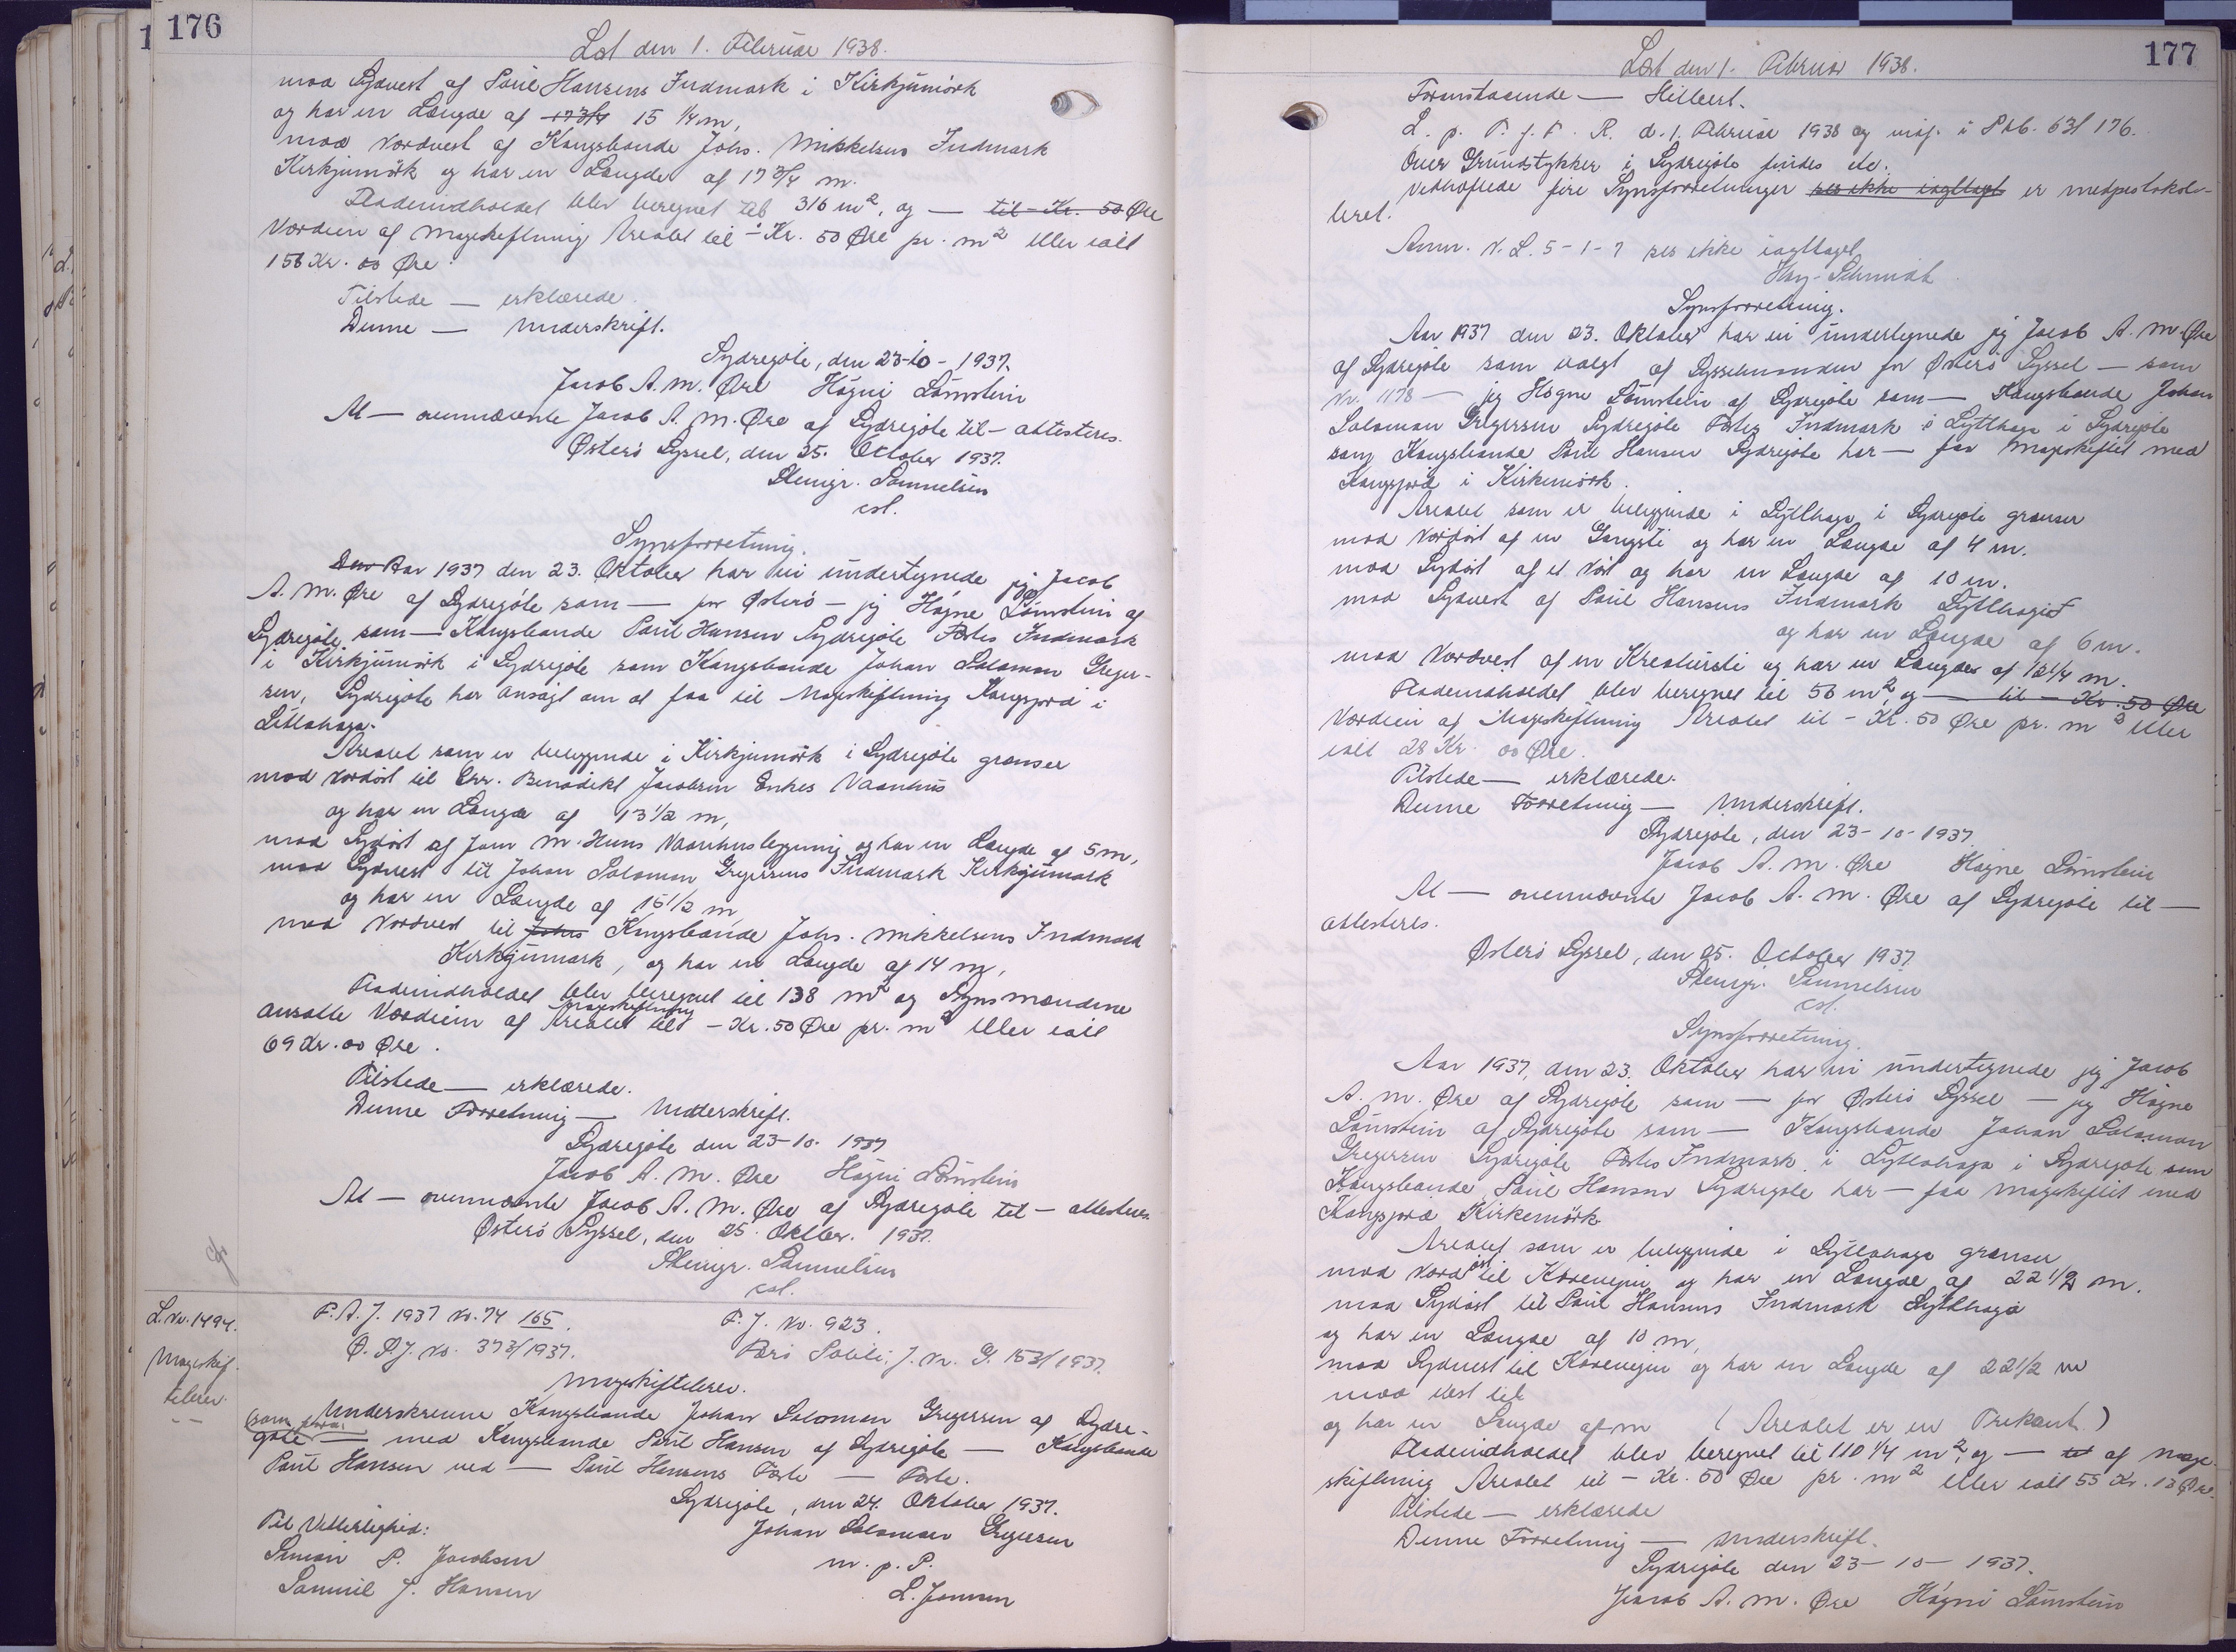 176
Læst den 1. Februar 1938.
mod Sydvest af Poul Hansens Indmark i Kirkjumörk
og har en Længde af 17 3/4 15 1/4 m,
mod Nordvest af Kongsbonde Johs. Mikkelsens Indmark
Kirkjumörk og har en Længde af 17 3/4 m.
Fladeindholdet blev beregnet til 316 m², og — til – Kr. 50 Øre
Værdien af Mageskiftning Arealet til – Kr. 50 Øre pr. m² eller ialt
158 Kr. 00 Øre.
Tilstede — erklærede.
Denne — Underskrift.
Sydregöte, den 23-10-1937.
Jacob A. M. Øre Högni Lömstein
At — ovennævnte Jacob A. M. Øre af Sydregöte til – attesteres.
Østerö Syssel, den 25. October 1937.
Steingr. Samuelsen
cst.
Synsforretning.
Den Aar 1937 den 23. Oktober har vi undertegnede jeg Jacob
A. M. Øre af Sydregöte som — for Østerö – jeg Högne Lömstein af
Sydregöte som — Kongsbonde Poul Hansen Sydregöte Fæstes Indmark
i Kirkjumörk i Sydregöte som Kongsbonde Johan Salomon Greger-
sen, Sydregöte har ansøgt om at faa til Mageskiftning Kongsjord i
Litlahaga.
Arealet som er beliggende i Kirkjumörk i Sydregöte grænser
mod Nordöst til Err. Benedikt Jacobsen Enkes Vaanhus
og har en Længde af 13 1/2 m,
mod Sydöst af Joen M. Huns Vaanhusbygning og har en Længde af 5 m,
mod Sydvest til Johan Salomon Gregersens Indmark Kirkjumark
og har en Længde af 15 1/2 m
mod Nordvest til Johs Kongsbonde Johs. Mikkelsens Indmark
Kirkjumark, og har en Længde af 14 m,
Fladeindholdet blev beregnet til 138 m² og Synsmændene
Mageskiftning
ansatte Værdien af Arealet til – Kr. 50 Øre pr. m² eller ialt
69 Kr. 00 Øre.
Tilstede — erklærede.
Denne Forretning — Underskrift.
Sydregöte den 23-10- 1937
Jacob A. M. Øre Högni Lömstein
At — ovennævnte Jacob A. M. Øre af Sydregöte til – attesteres
Østerö Syssel, den 25. Oktbr. 1937.
Steingr. Samuelsen
cst.
L. Nr. 1494.
Mageskif-
tebrev.
F. A. J. 1937 Nr. 74 165.
F. J. Nr. 923.
Ø. S. J. No. 373/1937.
Færö J. Nr. G. 153/1937.
Mageskiftebrev.
Underskrevne Kongsbonde Johan Salomon Gregersen af Sydre-
(som foran
göte — med Kongsbonde Poul Hansen af Sydregöte — Kongsbonde
Poul Hansen ved — Poul Hansens Fæste — Fæste.
Sydregöte, den 24. Oktober 1937.
Til Vitterlighed:
Johan Salomon Gregersen
Simon P. Jacobsen
m. p. P.
Samuel J. Hansen
L. Joensen
177
Læst den 1. Februar 1938.
Foranstaaende — Hilbert.
L. p. T. f. F. R. d. 1. Februar 1938 og indf. i Skb. 63/ 176.
Over Grundstykker i Sydregöte findes ele.
Vedhæftede fire Synsforretninger ses ikke iagttaget er medprotokol-
leret.
Anm. N. L. 5-1-7 ses ikke iagttaget
Hoy-Schmidt.
Synsforretning.
Aar 1937 den 23. Oktober har vi undertegnede jeg Jacob A. M. Øre
af Sydregöte som valgt af Sysselmanden for Østerö Syssel — som
Nr. 1178 — jeg Högne Lömstein af Sydregöte som — Kongsbonde Johan
Salomon Gregersen Sydregöte Fæstes Indmark i Lytlhaga i Sydregöte
som Kongsbonde Poul Hansen Sydregöte har — faa Mageskiftet med
Kongsjord i Kirkemörk.
Arealet som er beliggende i Lytlhaga i Sydregöte grænser
mod Nordöst af en Gangsti og har en Længde af 4 m.
mod Sydöst af et Nöst og har en Længde af 10 m.
mod Sydvest af Poul Hansens Indmark Lytlhagið
og har en Længde af 6 m.
mod Nordvest af en Kreatursti og har en Længde af 12 1/4 m.
Fladeindholdet blev beregnet til 56 m², og — til – Kr. 50 Øre
Værdien af Mageskiftning Arealet til – Kr. 50 Øre pr. m² eller
ialt 28 Kr. 00 Øre.
Tilstede — erklærede.
Denne Forretning — Underskrift.
Sydregöte, den 23-10-1937.
Jacob A. M. Øre Högne Lömstein
At — ovennævnte Jacob A. M. Øre af Sydregöte til —
attesteres.
Østerö Syssel, den 25. October 1937
Steingr. Samuelsen
cst.
Synsforretning.
Aar 1937, den 23. Oktober har vi undertegnede jeg Jacob
A. M. Øre af Sydregöte som — for Østerö Syssel — jeg Högne
Lömstein af Sydregöte som — Kongsbonde Johan Salomon
Gregersen Sydregöte Fæstes Indmark i Lytlahaga i Sydregöte som
Kongsbonde Poul Hansen Sydregöte har — faa Mageskiftet med
Kongsjord Kirkemörk
Arealet som er beliggende i Lytlahaga grænser
mod Nordöst til Körevejen og har en Længde af 22 1/2 m.
mod Sydöst til Poul Hansens Indmark Lytlhaga
og har en Længde af 10 m,
mod Sydvest til Körevejen og har en Længde af 22 1/2 m
mod Vest til
og har en Længde af m (Arealet er en Trekant.)
Fladeindholdet blev beregnet til 110 1/4 m², og — til af Mage-
skiftning Arealet til – Kr. 50 Øre pr. m² eller ialt 55 Kr. 13 Øre.
Tilstede — erklærede
Denne Forretning — Underskrift.
Sydregöte den 23-10-1937.
Jacob A. M. Øre Högni Lömstein